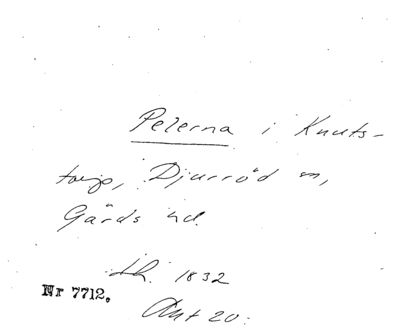 Pelerna i Knuts-
torp, Djurröd sn,
Gärds hd.
Lh. 1832
Nr 7712.
Ant 20: